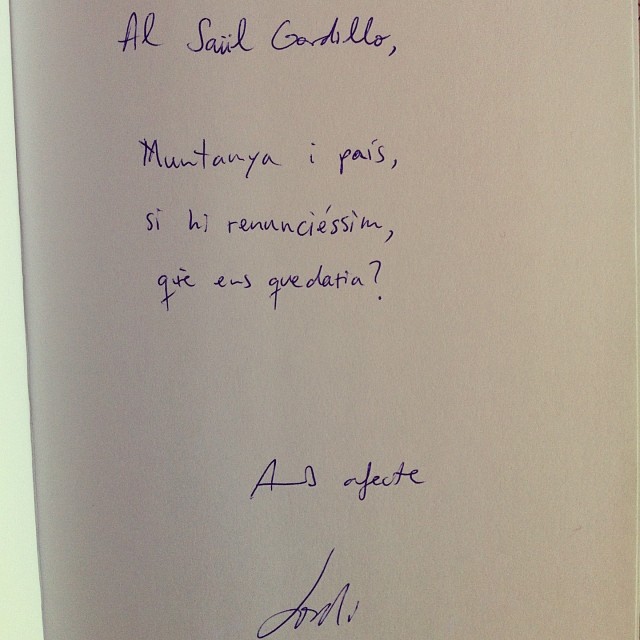 Al Saül Gordillo,
Muntanya i país,
si hi renunciéssim,
què ens quedaria?
Amb afecte
Jordi